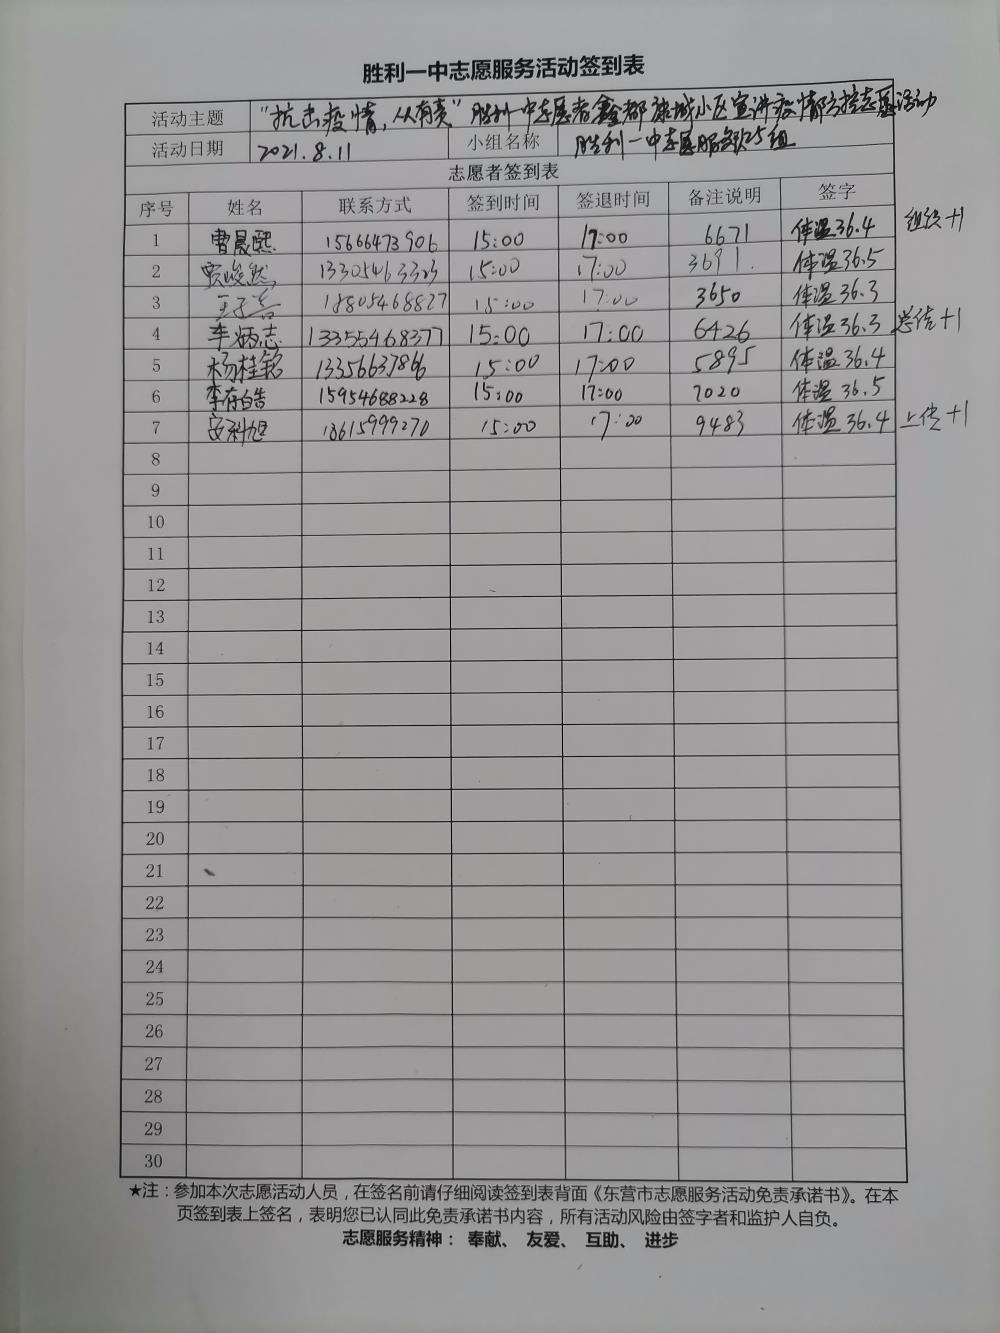 胜利一中志愿服务活动签到表
活动主题 "抗击疫情，从有责"胜利一中志愿者鑫都康城小区宣讲疫情防控志愿活动
活动日期 2021.8.11 小组名称 胜利一中志愿服务队25组
志愿者签到表
序号 姓名 联系方式 签到时间 签退时间 备注说明 签字
1 曹晟熙 15666473906 15:00 17:00 6671 体温36.4 组织+1
2 贾峻然 13305463323 15:00 17:00 3691. 体温36.5
3 王子浩 18805468827 15:00 17:00 3650 体温36.3
4 李炳志 13355468377 15:00 17:00 6426 体温36.3 总结+1
5 杨桂铭 13356637866 15:00 17:00 5895 体温36.4
6 李存皓 15954688228 15:00 17:00 7020 体温36.5
7 安科旭 18615999270 15:00 17:00 9483 体温36.4 上传+1
8
9
10
11
12
13
14
15
16
17
18
19
20
21
22
23
24
25
26
27
28
29
30
★注：参加本次志愿活动人员，在签名前请仔细阅读签到表背面《东营市志愿服务活动免责承诺书》。在本
页签到表上签名，表明您已认同此免责承诺书内容，所有活动风险由签字者和监护人自负。
志愿服务精神： 奉献、 友爱、 互助、 进步